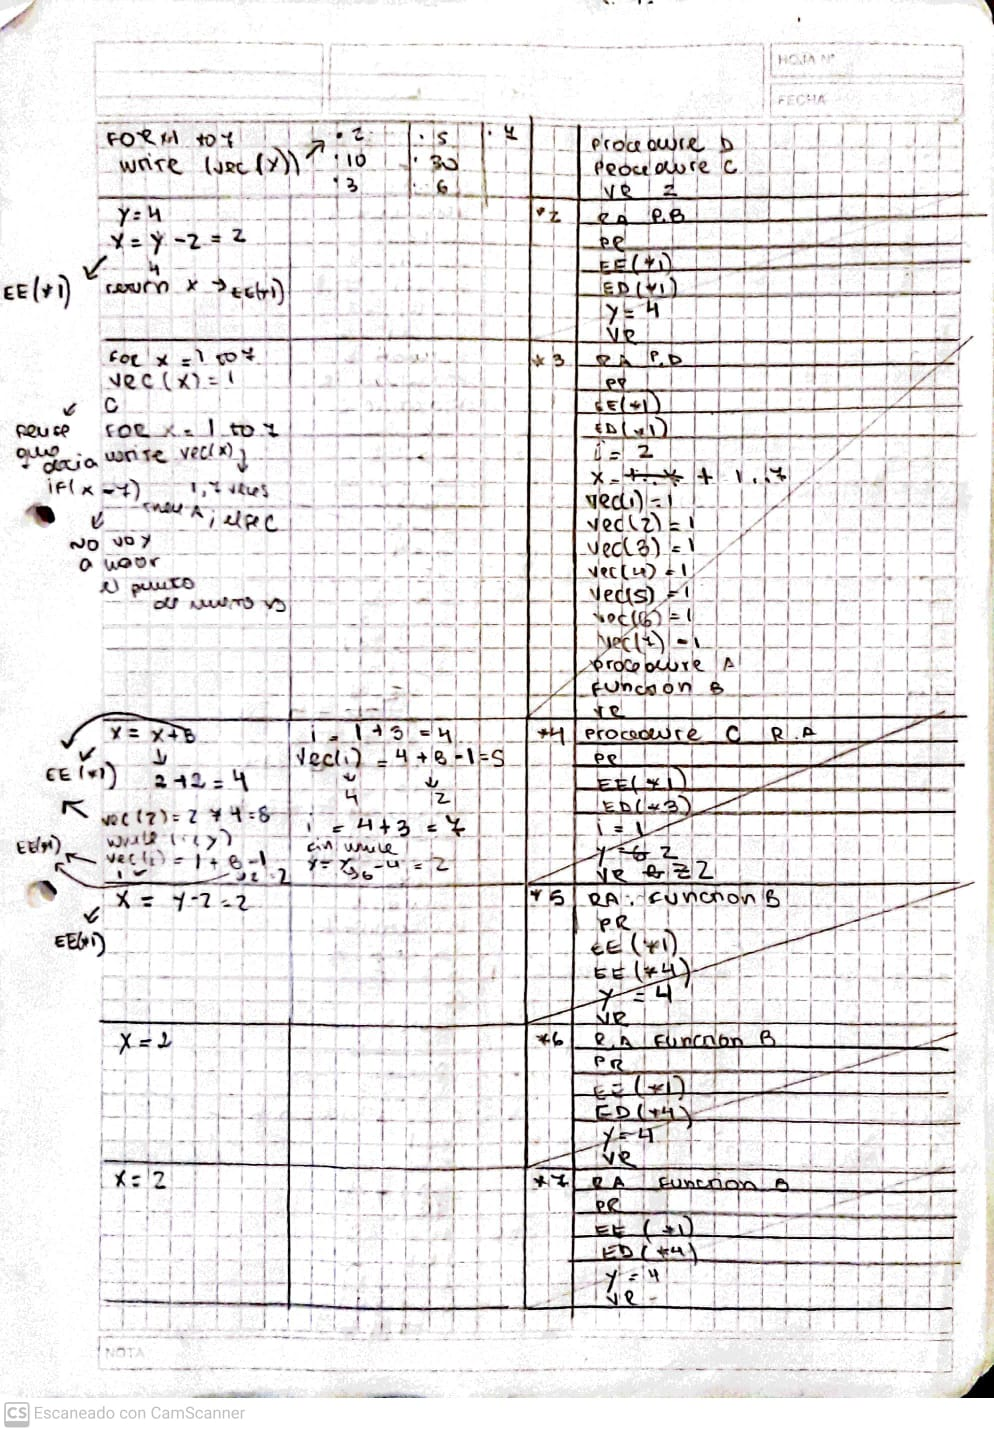 HOJA Nº
FECHA
FOR x=1 to 7
write (vec(x))
· 2
· 10
· 3
· 5
· 30
· 6
· 7
procedure D
Procedure C
VR 2
y=4
x = y - 2 = 2
4
return x → EE(*1)
EE(*1)
*2 RA P.B
PR
EE(*1)
ED(*1)
y = 4
VR
For x = 1 to 7
vec(x) = 1
C
FOR x = 1 to 7
write vec(x)
if(x = 7)
1, 7 veces
then A; else C
NO voy
a hacer
el punto
de nuevo
*3 RA P.D
PR
EE(*1)
ED(*1)
i = 2
x = 1..7
vec(1) = 1
vec(2) = 1
vec(3) = 1
vec(4) = 1
vec(5) = 1
vec(6) = 1
vec(7) = 1
procedure A
Function B
VR
x = x+B
EE(*1)
2+2 = 4
vec(2) = 2 * 4 = 8
write (i, y)
EE(*1)
vec(i) = 1 + B - 1
i = 1+3 = 4
vec(i) = 4 + B - 1 = 5
4 2
i = 4+3 = 7
fin while
= 2
*4 procedure C R.A
PR
EE(*1)
ED(*3)
i = 1
y = 6 2
VR 2
x = y-2 = 2
EE(*1)
*5 RA: Function B
PR
EE (*1)
EE (*4)
y = 4
VR
x = 2
*6 R.A Function B
PR
EE (*1)
ED(*4)
y = 4
VR
x = 2
*7 RA Function B
PR
EE (*1)
ED(*4)
y = 4
VR -
NOTA
CS Escaneado con CamScanner